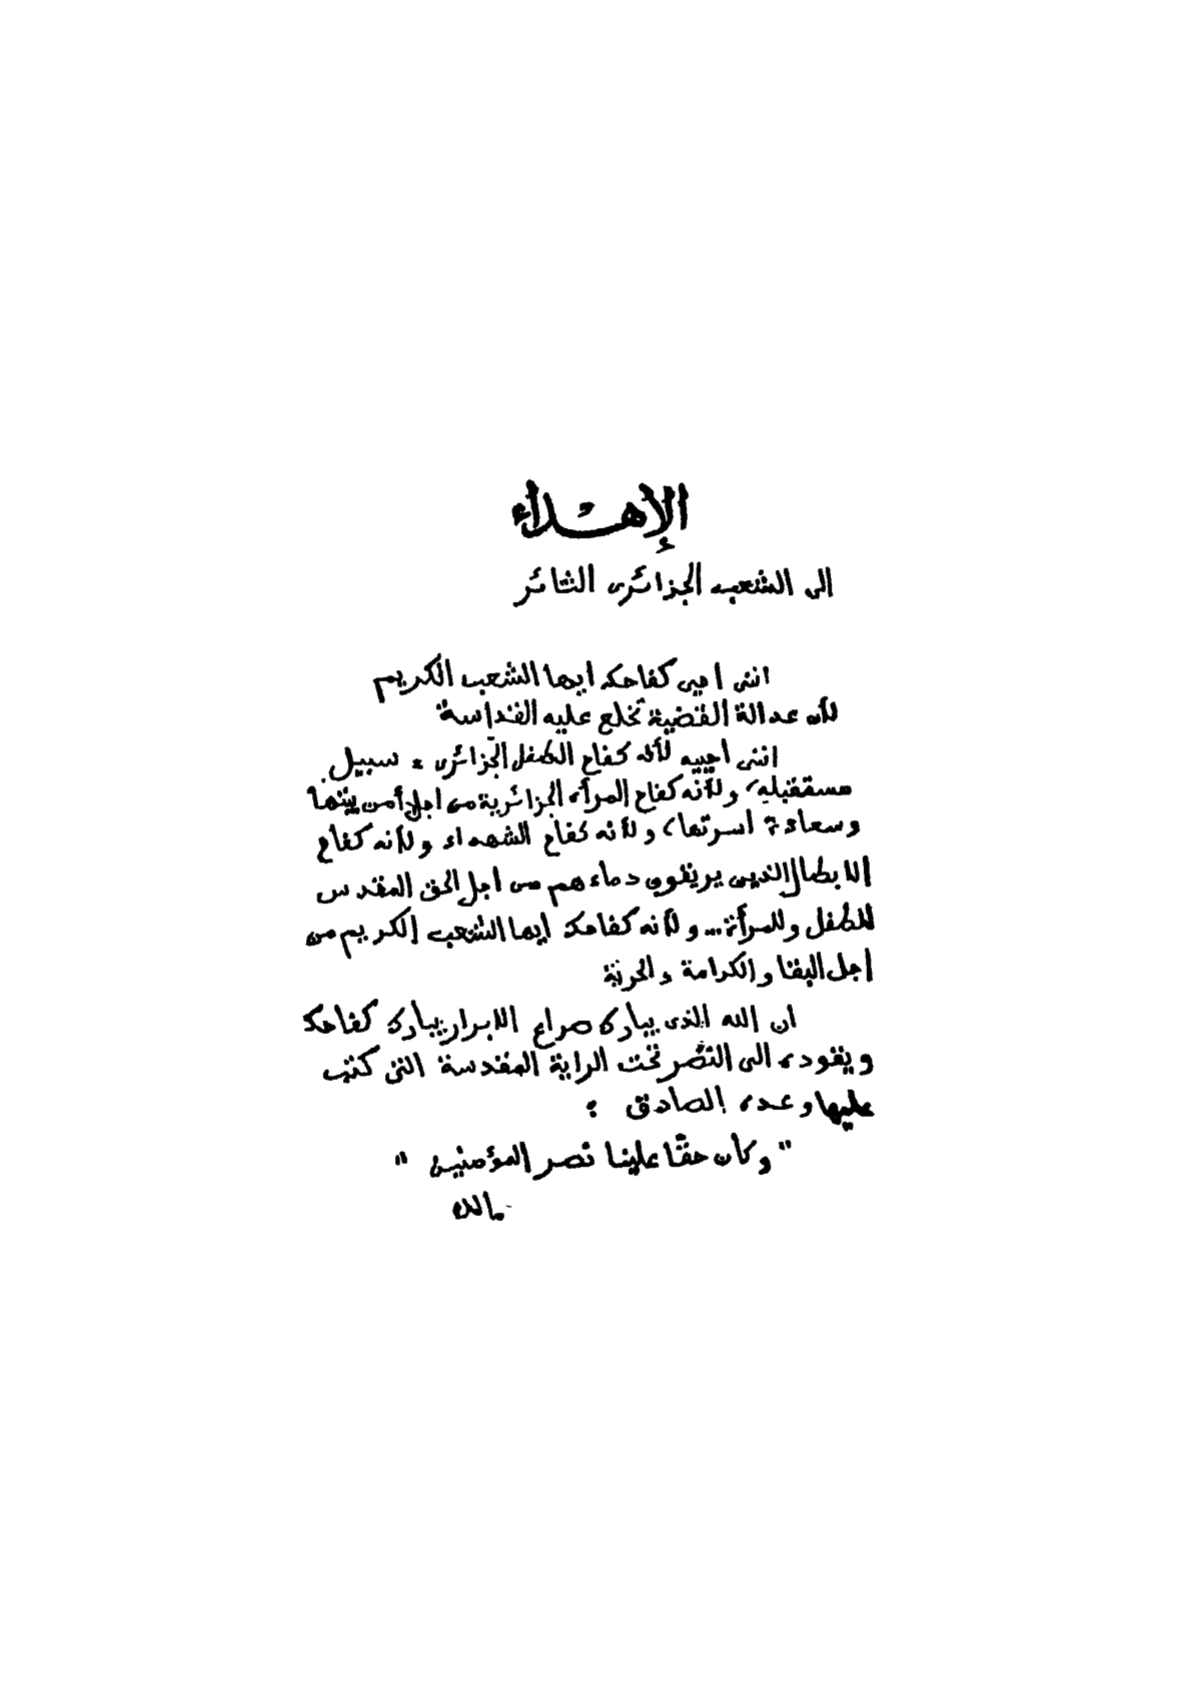 الإهداء
الى الشعب الجزائرى الثائر
اننى احيى كفاحك ايها الشعب الكريم
لأن عدالة القضية تخلع عليه القداسة
اننى أحييه لأنه كفاح الطفل الجزائرى * سبيل
مستقبله، ولأنه كفاح المرأة الجزائرية من اجل أمن بيتها
وسعادة اسرتها، ولأنه كفاح الشهداء ولأنه كفاح
الابطال الذين يريقون دماءهم من اجل الحق المقدس
للطفل وللمرأة... ولأنه كفاحك ايها الشعب الكريم من
اجل البقا والكرامة والحرية
ان الله الذى يبارك صراع الابرار يبارك كفاحك
ويقوده الى النصر تحت الراية المقدسة التى كتب
عليها وعده الصادق :
"وكان حقّا علينا نصر المؤمنين"
مالك